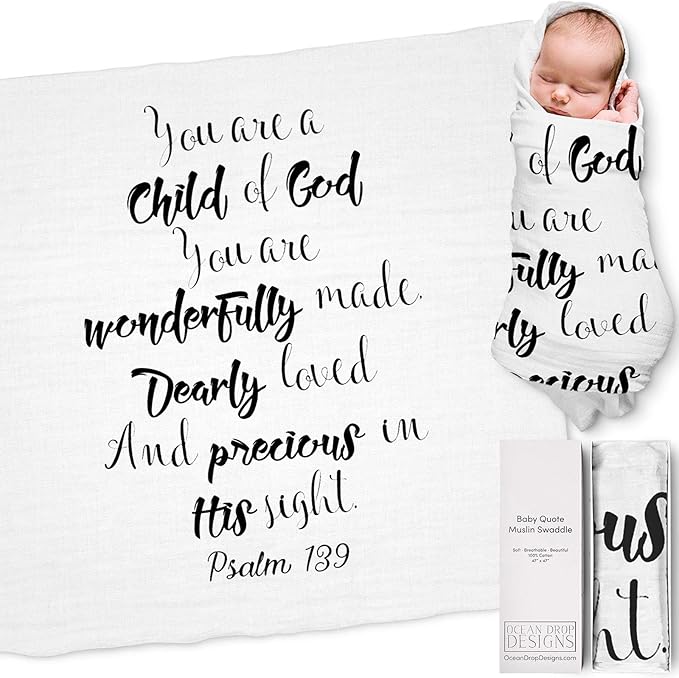 You are a
Child of God
You are
wonderfully made.
Dearly loved
And precious in
His sight.
Psalm 139
of God
u are
fully ma
rly loved
precious
Baby Quote
Muslin Swaddle
Soft · Breathable · Beautiful
100% Cotton
47" x 47"
OCEAN DROP
DESIGNS
OceanDropDesigns.com
us
ht.